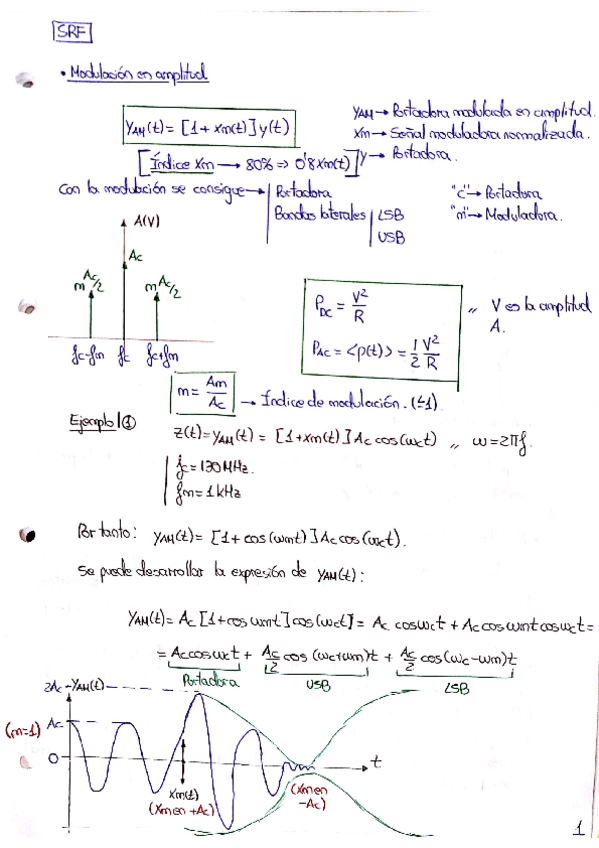 SRF
• Modulación en amplitud
y_AM(t) = [1 + xm(t)] y(t)
y_AM → Portadora modulada en amplitud.
xm → Señal moduladora normalizada.
y → Portadora.
[Índice xm → 80% => 0'8 xm(t)]
Con la modulación se consigue → | Portadora
Bandas laterales | LSB
USB
"c" → Portadora
"m" → Moduladora.
A(V)
Ac
m Ac/2
m Ac/2
fc-fm fc fc+fm
P_DC = V²/R
P_AC = <p(t)> = 1/2 V²/R
,, V es la amplitud
A.
m = Am/Ac → Índice de modulación. (≤1).
Ejemplo 1
z(t) = y_AM(t) = [1 + xm(t)] Ac cos(ωc t) ,, ω = 2πf.
fm = 1 kHz
Por tanto: y_AM(t) = [1 + cos(ωm t)] Ac cos(ωc t).
Se puede desarrollar la expresión de y_AM(t):
y_AM(t) = Ac [1 + cos ωm t] cos(ωc t) = Ac cos ωc t + Ac cos ωm t cos ωc t =
= Ac cos ωc t + Ac/2 cos (ωc + ωm)t + Ac/2 cos (ωc - ωm)t
Portadora USB LSB
2Ac y_AM(t)
(m=1) Ac
0
t
xm(t)
(xm en +Ac)
(xm en
-Ac)
1